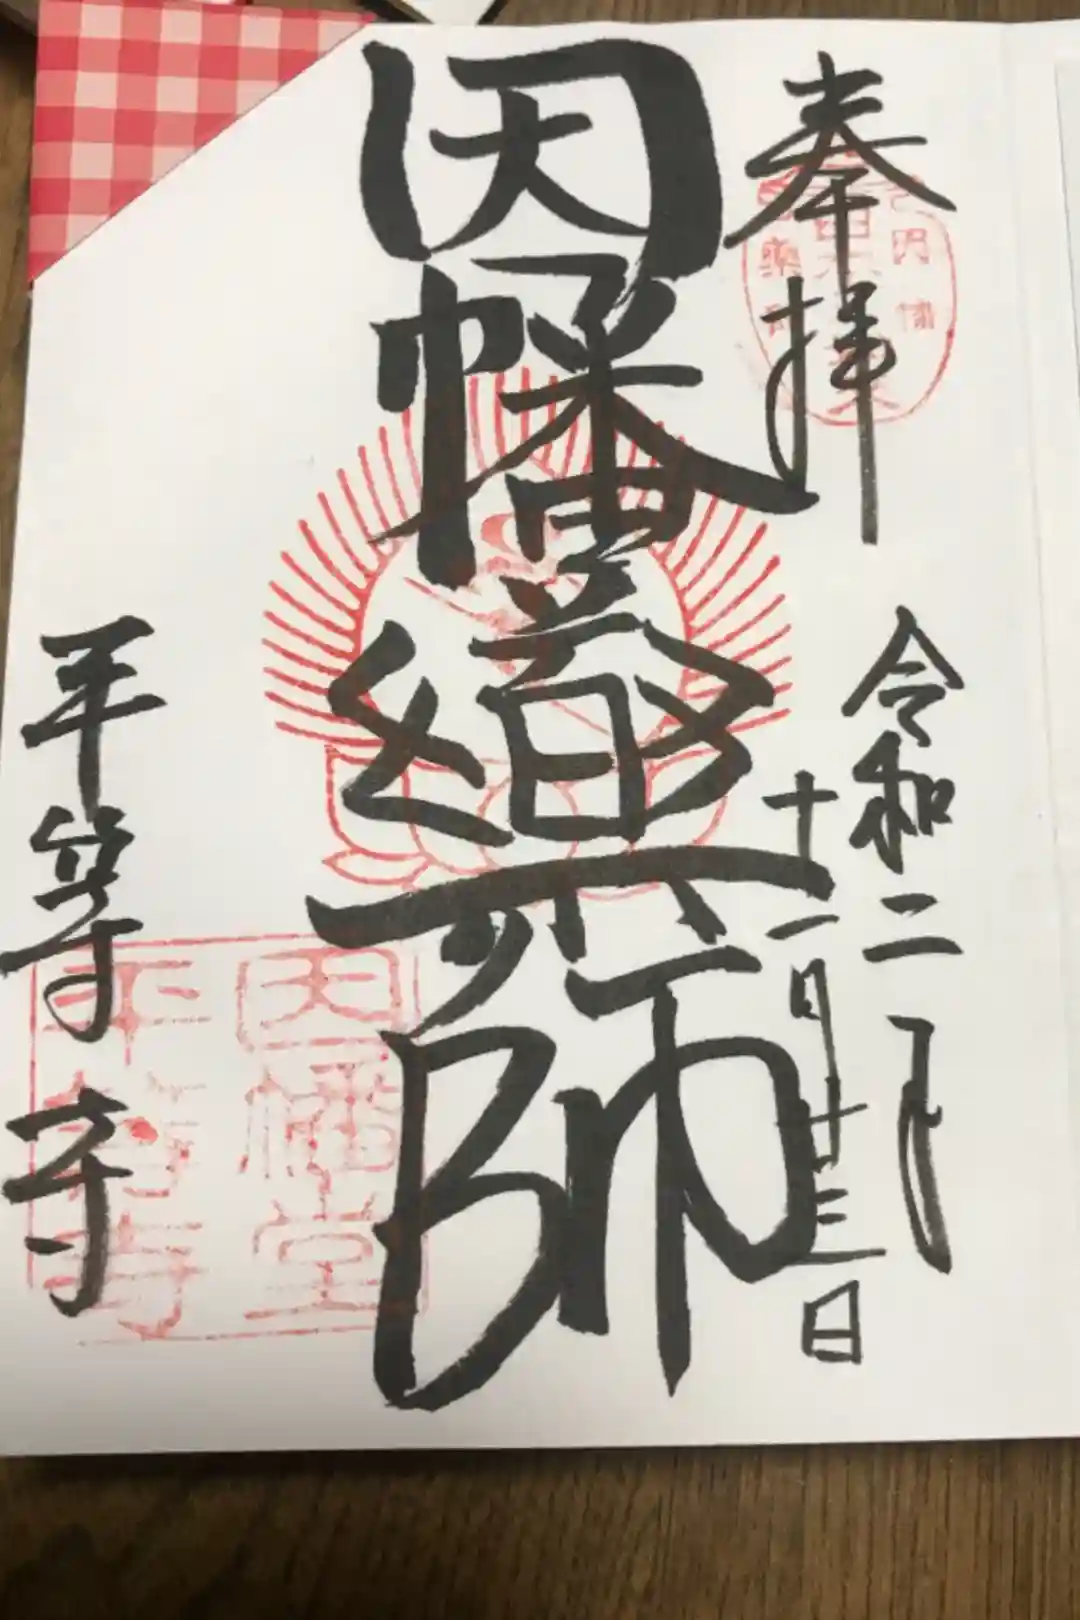 奉拝
令和二年
十一月廿三日
因幡薬師
平等寺
因幡堂
平等寺